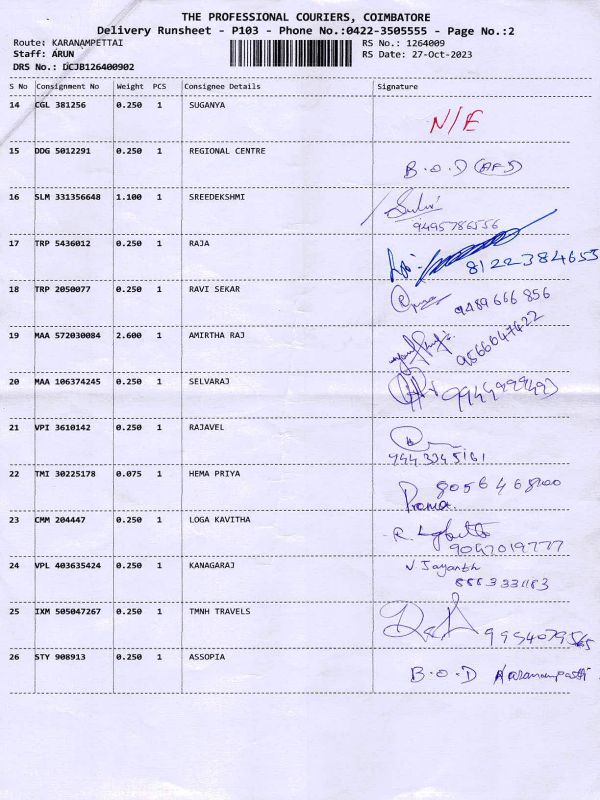 THE PROFESSIONAL COURIERS, COIMBATORE
Delivery Runsheet - P103 - Phone No.:0422-3505555 - Page No.:2
Route: KARANAMPETTAI RS No.: 1264009
Staff: ARUN RS Date: 27-Oct-2023
DRS No.: DCJB126400902
S No Consignment No Weight PCS Consignee Details Signature
14 CGL 381256 0.250 1 SUGANYA N/E
15 DDG 5012291 0.250 1 REGIONAL CENTRE B.O.D
16 SLM 331356648 1.100 1 SREEDEKSHMI
9495786556
17 TRP 5436012 0.250 1 RAJA 8122384653
18 TRP 2050077 0.250 1 RAVI SEKAR 9489 666 856
19 MAA 572030084 2.600 1 AMIRTHA RAJ 9566647422
20 MAA 106374245 0.250 1 SELVARAJ
21 VPI 3610142 0.250 1 RAJAVEL
22 TMI 30225178 0.075 1 HEMA PRIYA
23 CMM 204447 0.250 1 LOGA KAVITHA
9047019777
24 VPL 403635424 0.250 1 KANAGARAJ
25 IXM 505047267 0.250 1 TMNH TRAVELS
26 STY 908913 0.250 1 ASSOPIA B.O.D